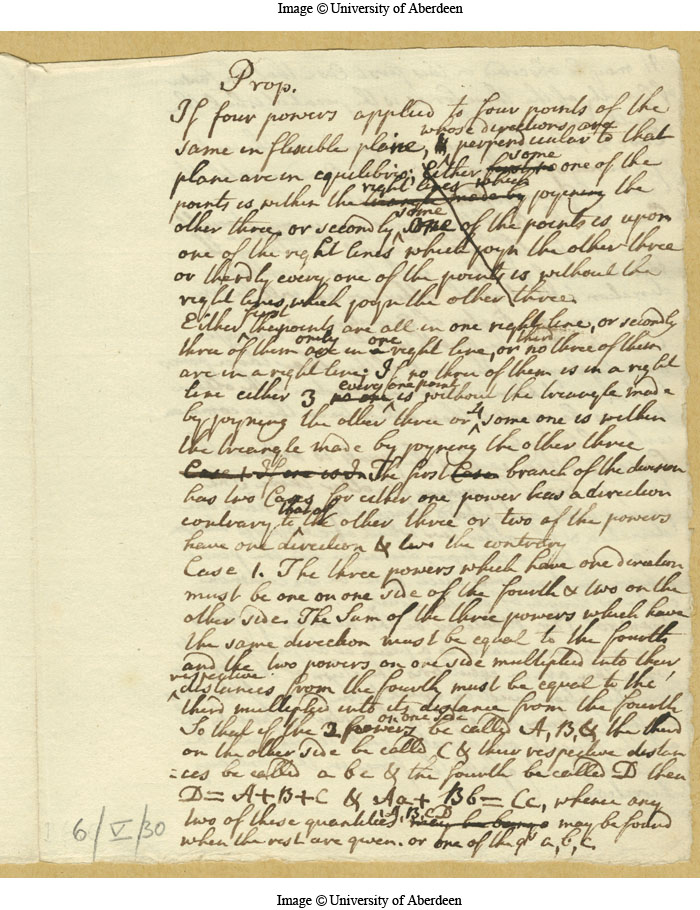 Image © University of Aberdeen
Prop.
If four powers applied to four points of the
whose directions are
same inflexible plane, & perpendicular to that
some
plane are in equilibrio; Either one of the
right lines which
points is within the triangle made by joyning the
some
other three, or secondly one of the points is upon
one of the right lines which joyn the other three
or thirdly every one of the points is without the
right lines which joyn the other three.
first
Either the points are all in one right line, or secondly
only one third
three of them are in a right line, or no three of them
are in a right line; If no three of them is in a right
every one point
line either 3 no one is without the triangle made
by joyning the other three or 4 some one is within
the triangle made by joyning the other three
Case 1. If one is in The first Case branch of the division
has two Cases for either one power has a direction
that of
contrary to the other three or two of the powers
have one direction & two the contrary
Case 1. The three powers which have one direction
must be one on one side of the fourth & two on the
other side. The Sum of the three powers which have
the same direction must be equal to the fourth
and the two powers on one side multiplied into their
respective
distances from the fourth must be equal to the
third multiplied into its distance from the fourth
on one side
So that if the 2 powers be called A, B, & the third
on the other side be called C & their respective distan
=ces be called a b c & the fourth be called D then
D = A + B + C & Aa + Bb = Cc, whence any
A, B, C, D
two of these quantities may be found
when the rest are given. or one of the qs a, b, c.
6/V/30
Image © University of Aberdeen